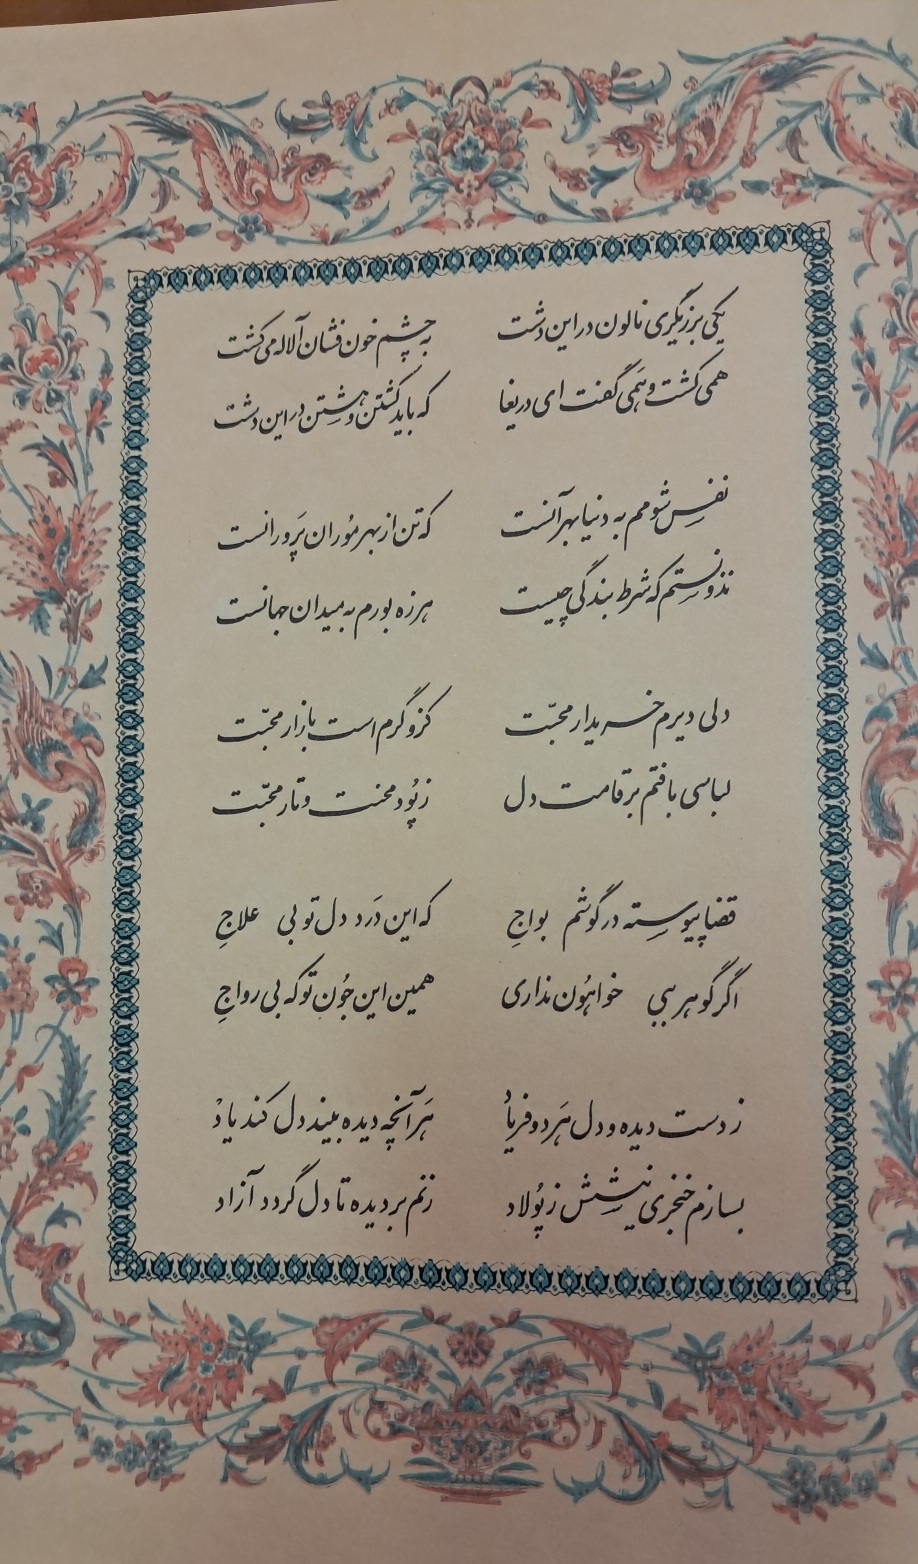 یکی برزیگری نالون در این دشت به چشم خون فشان آلاله می‌کشت
همی کشت و هَمی گفت ای دریغا که باید کشتن و هِشتن در این دشت
نفسِ شومم به دنیا بهر آنست که تن از بهر مُوران پَرورانست
ندونستم که شرط بندگی چیست هرزه بورم به میدان جهانست
دلی دیرم خریدار محبّت کزو گرم است بازار محبّت
لباسی بافتم بر قامت دل ز پُود محنت و تار محبّت
قضا پیوسته در گوشم بواجِ که این دَرد دل تو بی علاجِ
اگر گوهر ببی خواهُون نذاری همین این جُون تو که بی رواجِ
ز دست دیده و دل هَر دو فریاد هَر آنچه دیده بیند دل کند یاد
بسازم خنجری نیشِش ز پُولاد زنم بر دیده تا دل گردد آزاد